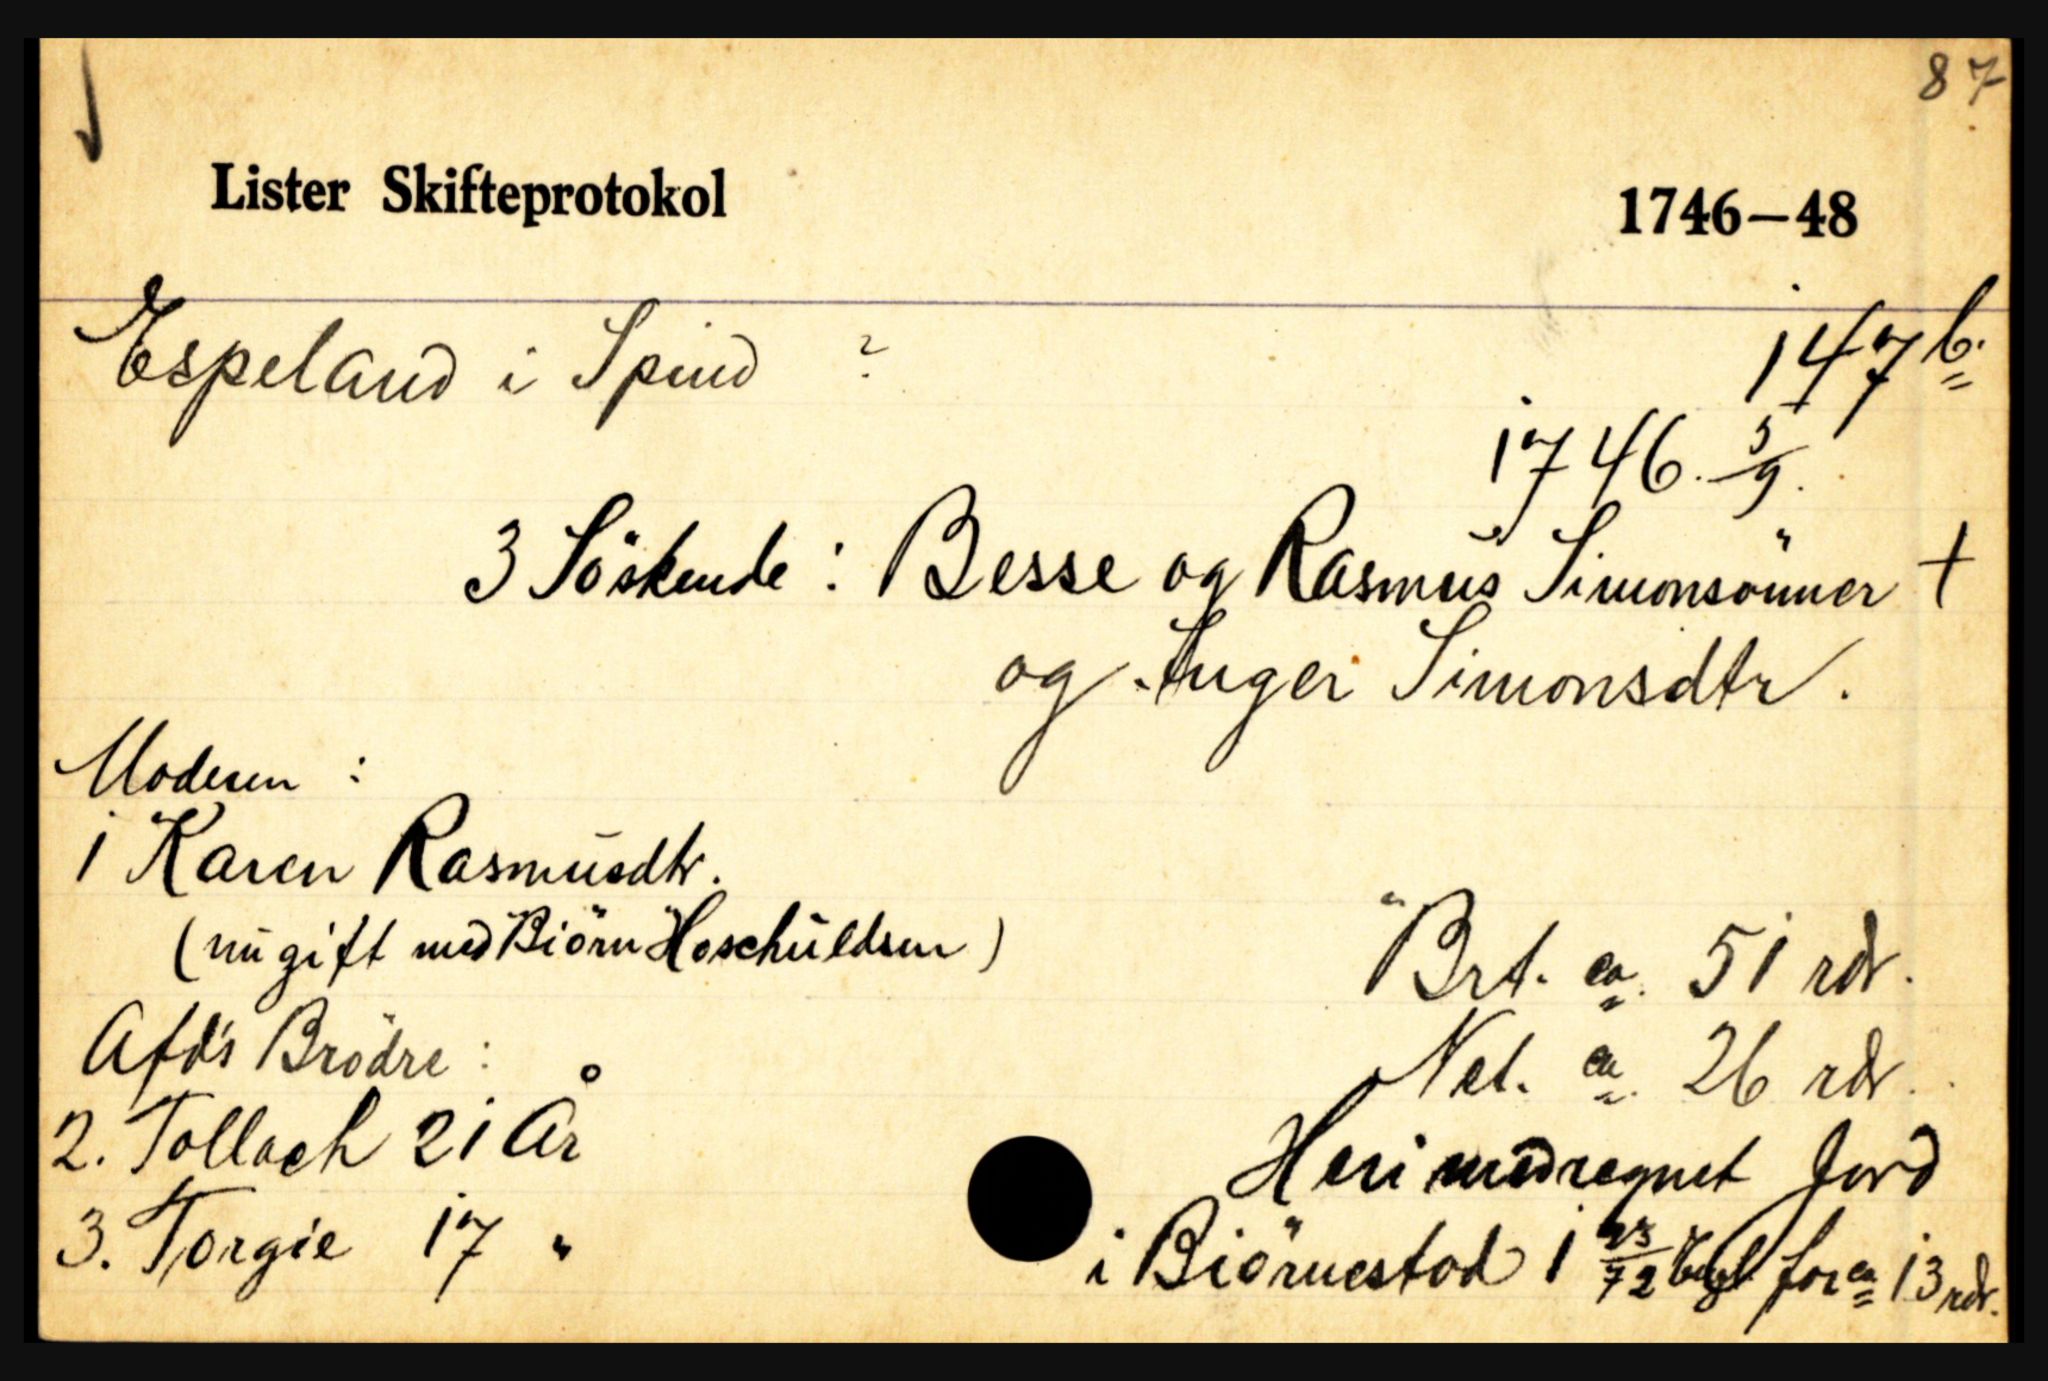 87
Lister Skifteprotokol 1746–48
Espeland i Spind ? 147b.
1746. 5/9.
3 Söskende : Besse og Rasmus Simonsönner +
og Inger Simonsdtr.
Moderen :
1 Karen Rasmusdtr.
(nu gift med Biörn Hoschuldsen)
Brt. ca. 51 rdr.
Afd's Brödre :
Net. ca. 26 rdr.
2. Tollach 21 År
Heri medregnet Jord
3. Torgie 17 "
i Biörnestad 1 23/72 for ca 13 rdr.